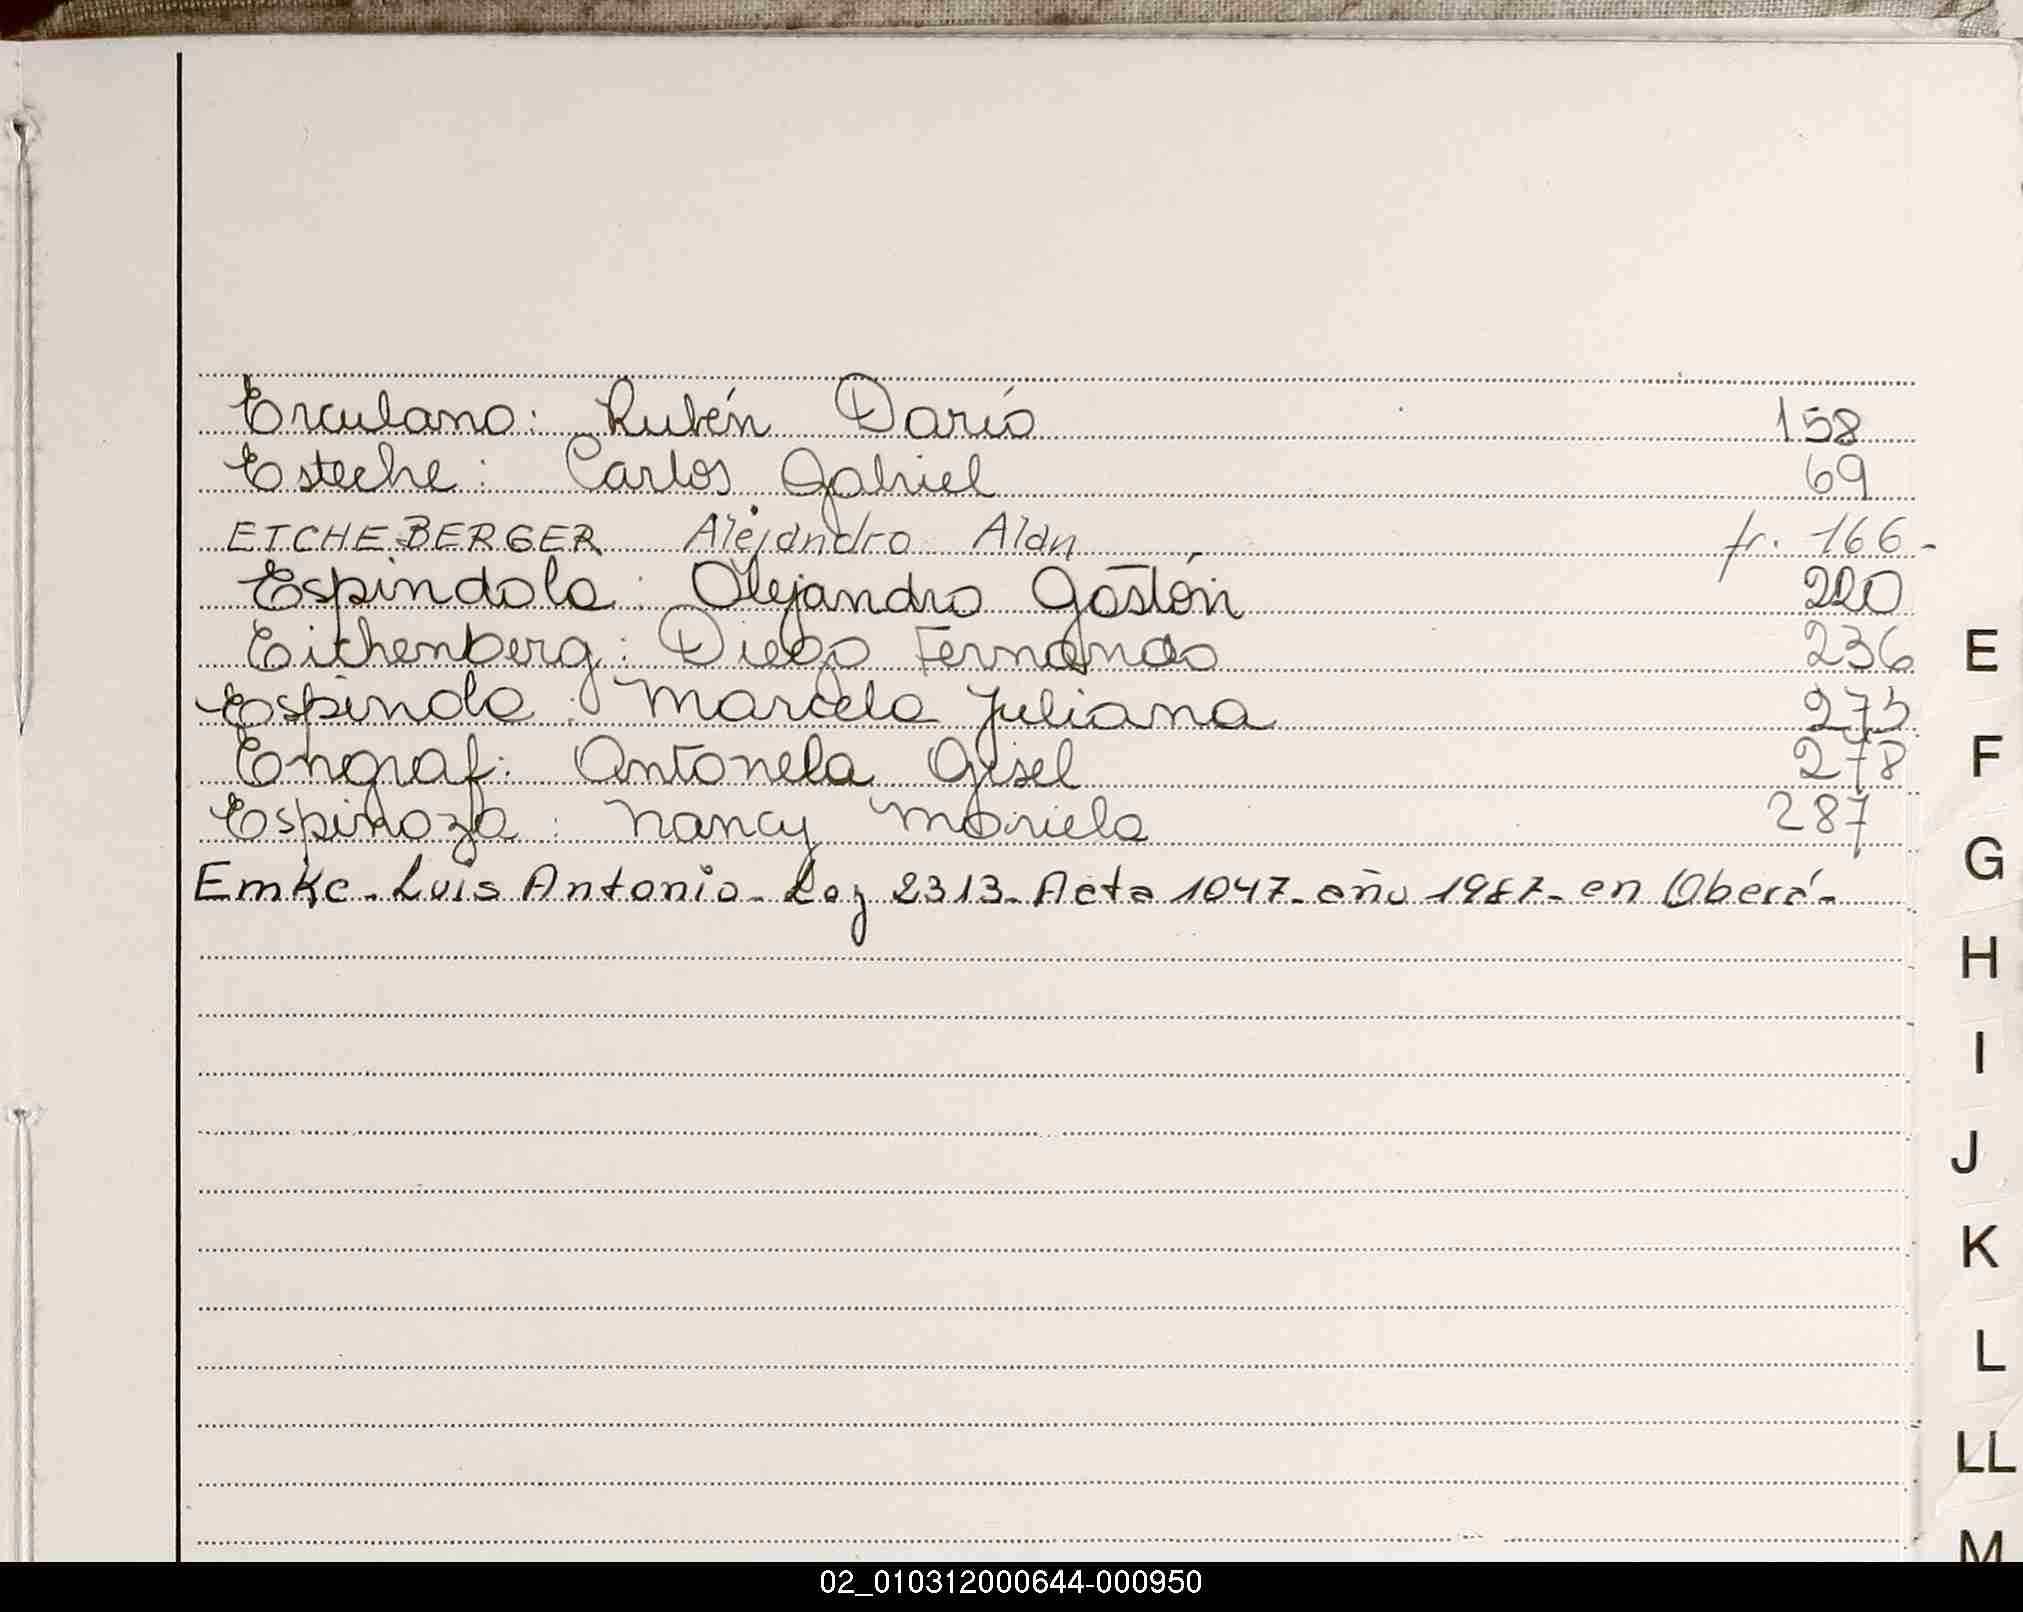 Erculano: Rubén Darío 158
Esteche: Carlos Gabriel 69
EICHEBERGER Alejandro Alan fr. 166-
Espindola: Alejandro Gastón 220
Eichenberg: Diego Fernando 236
Espindola: Marcela Juliana 275
Engraf: Antonela Gisel 278
Espinoza: Nancy Mariela 287
Emke - Luis Antonio - Ley 2313 - Acta 1047 - año 1987 - en Oberá -
E
F
G
H
I
J
K
L
LL
M
02_010312000644-000950